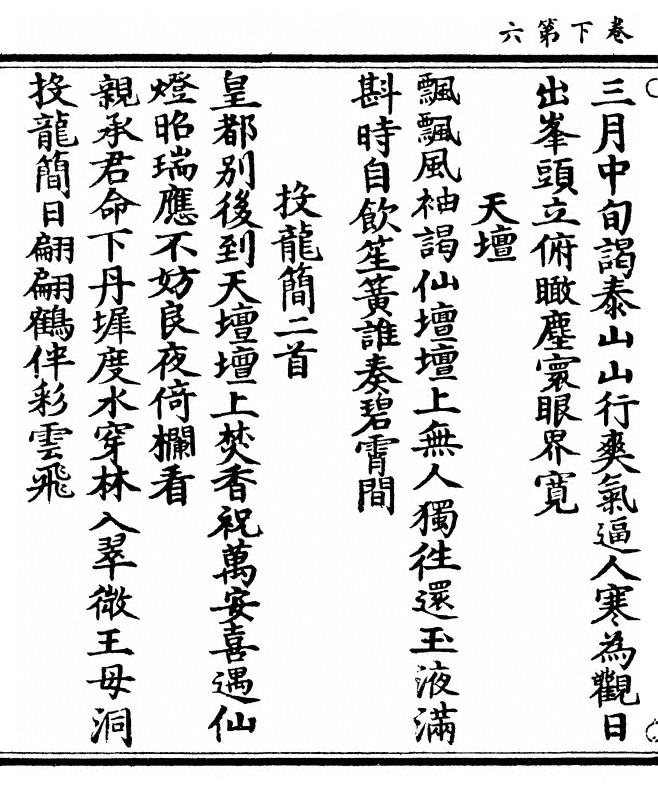 卷下第六
三月中旬謁泰山山行爽氣逼人寒為觀日
出峯頭立俯瞰塵寰眼界寬
天壇
飄飄風袖謁仙壇壇上無人獨徃還玉液滿
斟時自飲笙簧誰奏碧霄間
投龍簡二首
皇都别後到天壇壇上焚香祝萬安喜遇仙
燈昭瑞應不妨良夜倚欄看
親承君命下丹墀度水穿林入翠微王母洞
投龍簡日翩翩鶴伴彩雲飛